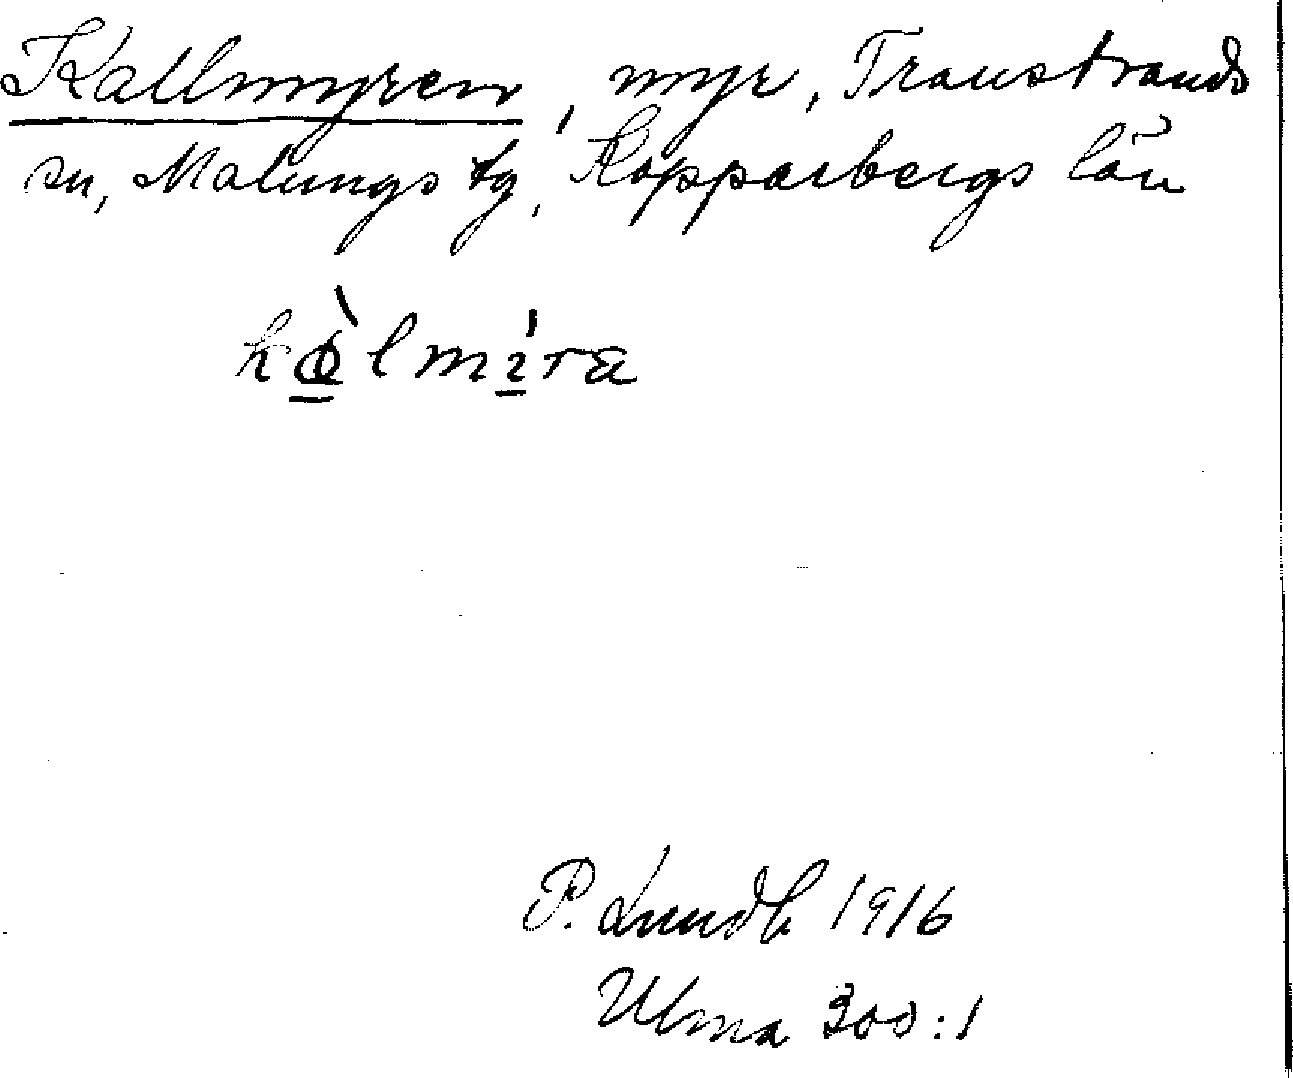 Kallmyren, myr, Transtrands
sn, Malungs tg, Kopparbergs län
P. Lundh 1916
Ulma 300:1